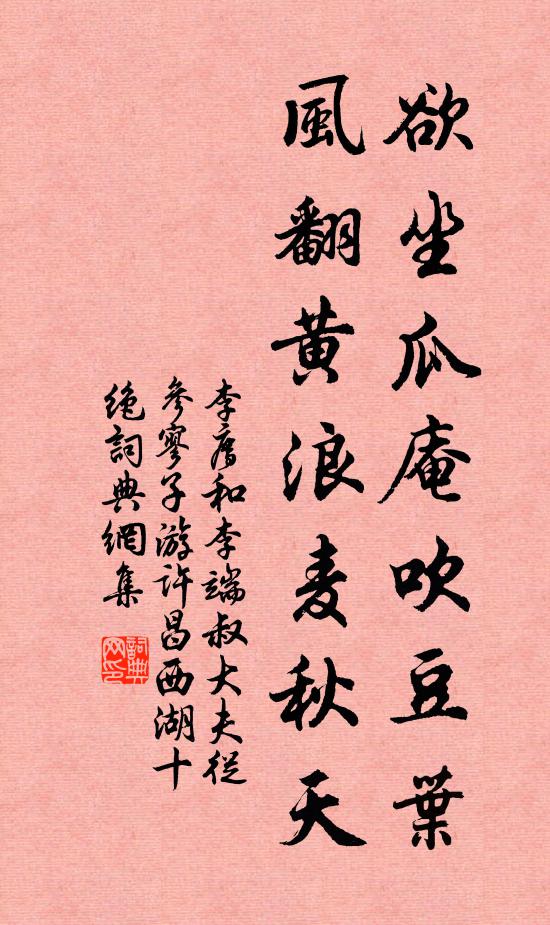 欲坐瓜庵吹豆葉
風翻黄浪麦秋天
李廌和李端叔大夫從
參寥子游許昌西湖十
絶詞典網集
詞典网印